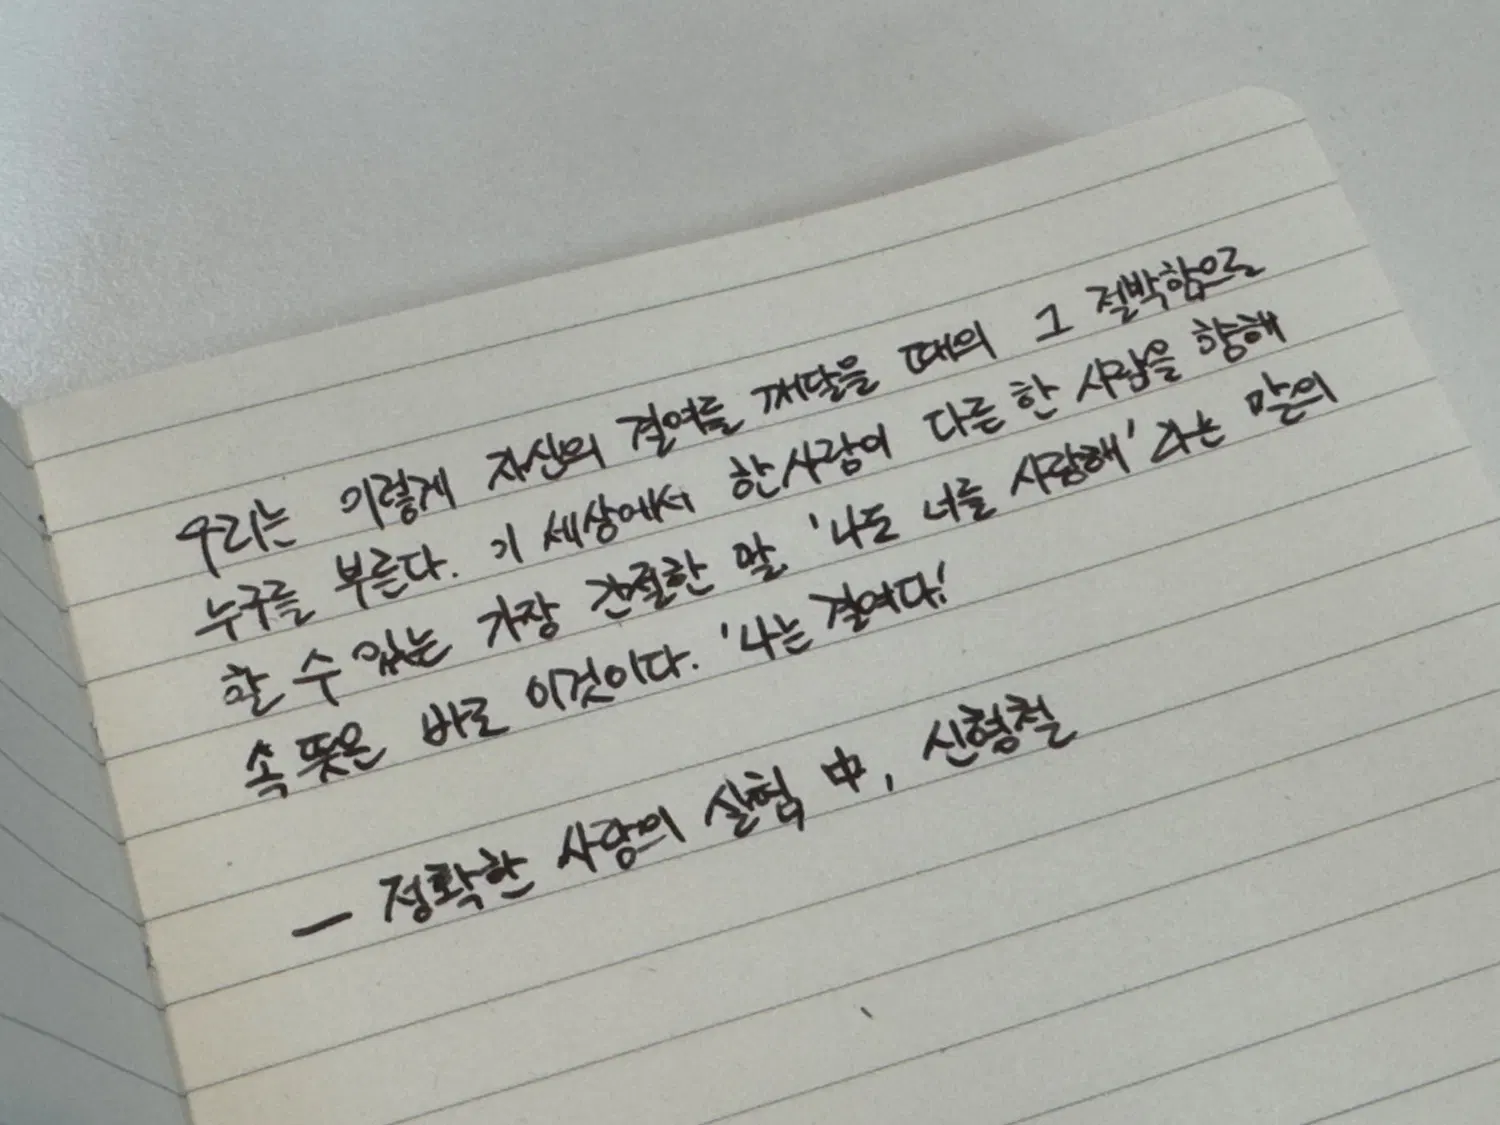 우리는 이렇게 자신의 결여를 깨달을 때의 그 절박함으로
누구를 부른다. 이 세상에서 한사람이 다른 한 사람을 향해
할 수 있는 가장 간절한 말 '나도 너를 사랑해' 라는 말의
속뜻은 바로 이것이다. '나는 결여다.'
— 정확한 사랑의 실험 中, 신형철